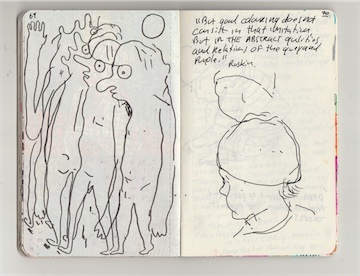 69
90
"But good colouring does not
consist in that imitation,
But in THE ABSTRACT qualities
and Relations of the grey and
Purple."
Ruskin.